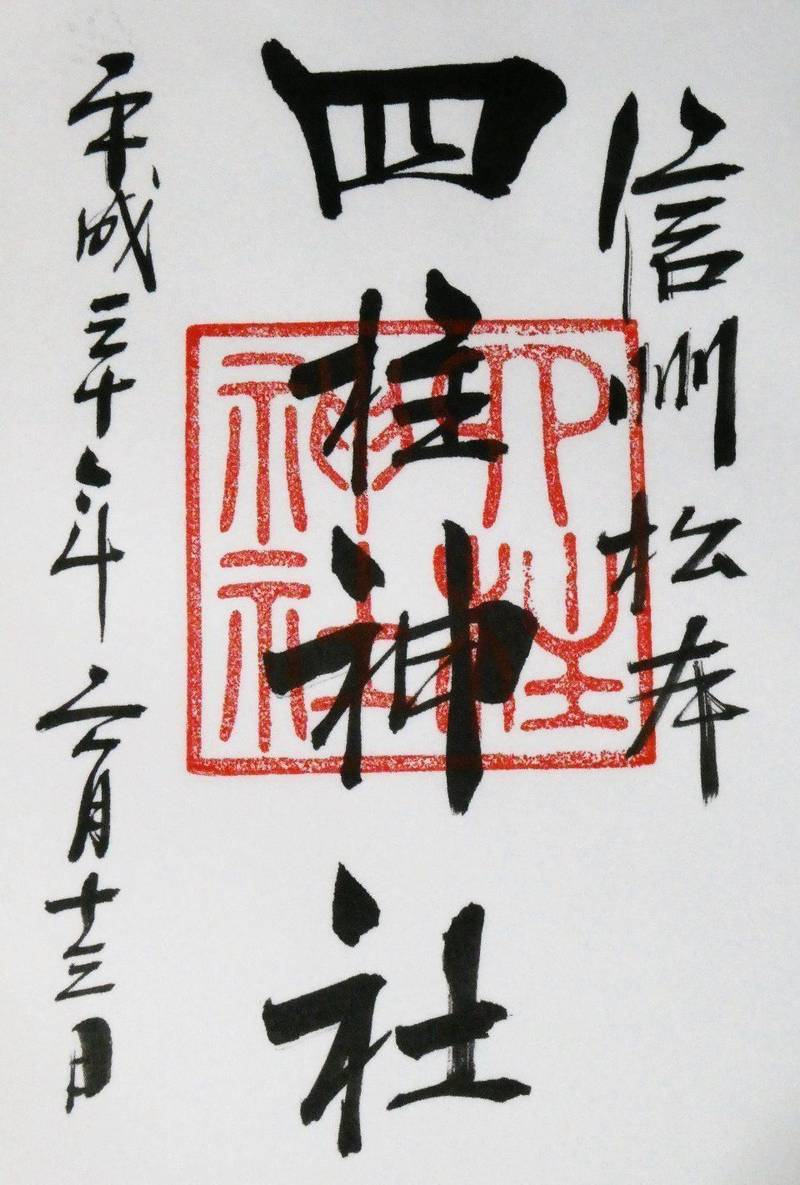 信州松本
四柱神社
四柱
神社
平成二十八年六月十三日